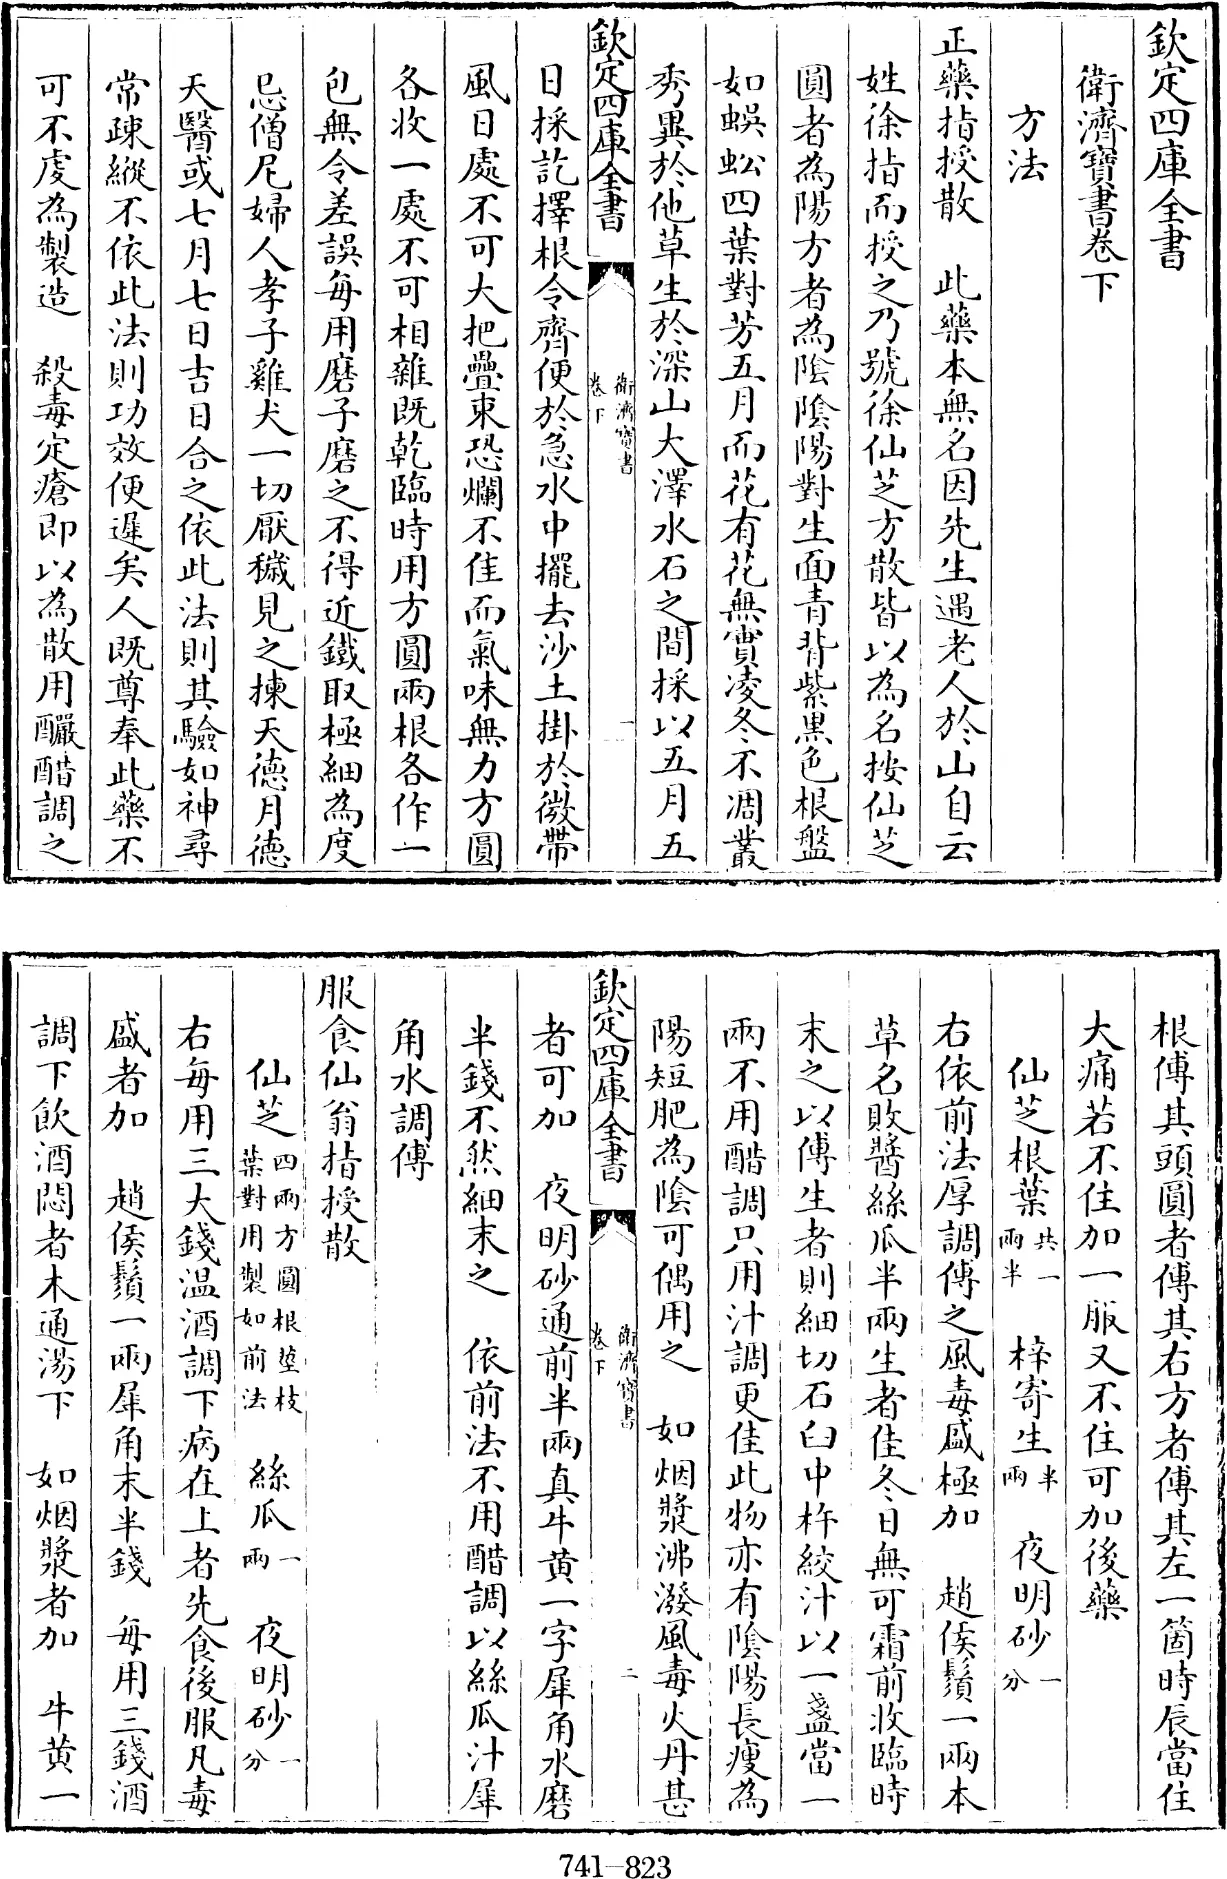 欽定四庫全書
衛濟寶書卷下
方法
正藥指授散　此藥本無名因先生遇老人於山自云
姓徐指而授之乃號徐仙芝方散皆以為名按仙芝
圓者為陽方者為陰陰陽對生面青背紫黒色根盤
如蜈蚣四葉對芳五月而花有花無實凌冬不凋叢
秀異於他草生於深山大澤水石之間採以五月五
欽定四庫全書
衛濟寶書
卷下
一
日採訖擇根令齊便於急水中擺去沙土掛於微帶
風日處不可大把疊束恐爛不佳而氣味無力方圓
各收一處不可相雜既乾臨時用方圓兩根各作一
包無令差誤每用磨子磨之不得近鐵取極細為度
忌僧尼婦人孝子雞犬一切厭穢見之揀天德月德
天醫或七月七日吉日合之依此法則其驗如神尋
常踈縱不依此法則功效便遲矣人既尊奉此藥不
可不虔為製造　殺毒定瘡即以為散用釅醋調之
根傅其頭圓者傅其右方者傅其左一箇時辰當住
大痛若不住加一服又不住可加後藥
仙芝根葉共一兩半　梓寄生半兩　夜明砂一分
右依前法厚調傅之風毒盛極加　趙侯鬚一兩本
草名敗醬絲瓜半兩生者佳冬日無可霜前收臨時
末之以傅生者則細切石臼中杵絞汁以一盞當一
兩不用醋調只用汁調更佳此物亦有陰陽長瘦為
陽短肥為陰可偶用之　如烟漿沸潑風毒火丹甚
欽定四庫全書
衛濟寶書
卷下
二
者可加　夜明砂通前半兩真牛黄一字犀角水磨
半錢不然細末之　依前法不用醋調以絲瓜汁犀
角水調傅
服食仙翁指授散
仙芝四兩方圓根莖枝葉對用製如前法　絲瓜一兩　夜明砂一分
右每用三大錢温酒調下病在上者先食後服凡毒
盛者加　趙侯鬚一兩犀角末半錢　每用三錢酒
調下飲酒悶者木通湯下　如烟漿者加　牛黄一
741-823